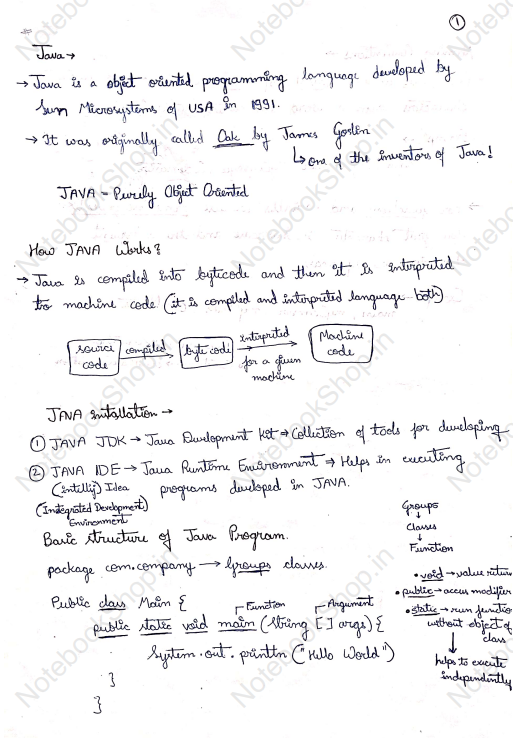 1
Java →
→ Java is a object oriented programming language developed by
Sun Microsystems of USA in 1991.
→ It was originally called Oak by James Goslin
↳ one of the inventors of Java!
JAVA - Purely Object Oriented
How JAVA Works?
→ Java is compiled into bytecode and then it is interpreted
to machine code (it is compiled and interpreted language both)
source code → compiled → byte code → interpreted for a given machine → Machine code
JAVA installation →
① JAVA JDK → Java Development Kit ⇒ Collection of tools for developing
② JAVA IDE → Java Runtime Environment ⇒ Helps in executing
(intillij) Idea programs developed in JAVA.
(Integrated Development)
Environment
Basic structure of Java Program.
package com.company → Groups classes.
Public class Main {
Function Argument
public static void main (String [] args) {
System.out.println ("Hello World")
}
}
Groups
↓
Classes
↓
Function
• void → value return
• public → access modifier
• static → run function
without object of
class
↓
helps to execute
independently
NotebookShop.in